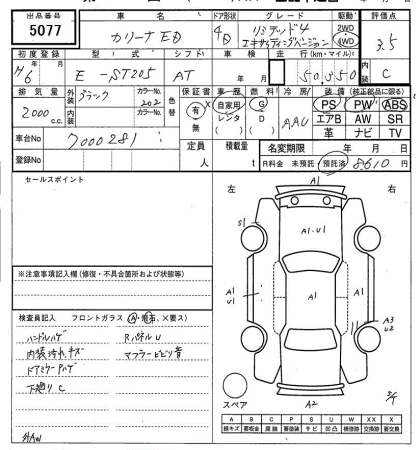 出品番号 車名 ドア形状 グレード 駆動 評価点
5077 カリーナ ED 4D リミテッド4 エキサイティングバージョン 2WD 4WD 3.5
初度登録 型式 シフト 車検 走行(km・マイル) 内装
H6 E-ST205 AT 年 月 50350 C
排気量 外装 ブラック カラーNo. 202 色替 保証書 車歴 燃料 冷房 装備(純正部品に限る)
2000 c.c. 内装 カラーNo. 有 無 自家用 レンタ ( ) G D ( ) AAC PS PW ABS
エアB AW SR
革 ナビ TV
車台No 7000281 定員 人 積載量 t 名変期限 年 月 日
登録No R料金 未預託 預託済 8610 円
セールスポイント
左 右
A1
S1
A・U1
A1 U1
A1
A1
A3 U2
A2
スペア
※注意事項記入欄(修復・不具合箇所および状態等)
検査員記入 フロントガラス (A・飛石、×要ス)
ハンドルハゲ RパネルU
内装汚れ、キズ マフラービビリ音
ドアミラーPハゲ
下廻りC
外AW
A B C P S U W X XX
線キズ 要板金 腐蝕 要塗装 サビ 凹凸 補修跡 交換跡 要交換